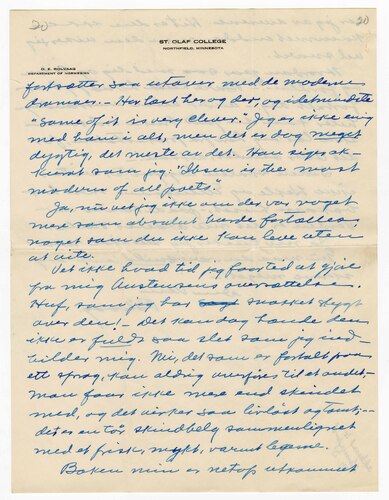 20
20
ST. OLAF COLLEGE
NORTHFIELD, MINNESOTA
O. E. ROLVAAG
DEPARTMENT OF NORWEGIAN
fortsætter saa utover med de moderne
dramaer. – Her last her og der, og i det mindste
"Some of it is very clever." Jeg er ikke enig
med ham i alt, men det er dog meget
dygtig, det meste av det. Han siges ak-
kurat som jeg: "Ibsen is the most
modern of all poets."
Ja, nu vet jeg ikke om der var noget
mere som absolut burde fortælles,
noget som du ikke kan leve uten
at vite.
Vet ikke hvad tid jeg faar til at gjøre
fra mig Austensens oversættelse.
Huf, som jeg har snakket stygt
over den! – Det kan dog hænde den
ikke er fuldt saa slet som jeg ind-
bilder mig. Nei, det som er fortalt paa
ett sprog, kan aldrig overføres til et andet –
man faar ikke mere end skindet
med, og det virker saa livløst og tomt; –
det er en tør skindbelg sammenlignet
med et friskt, mykt, varmt legeme.
Boken min er netop utkommet